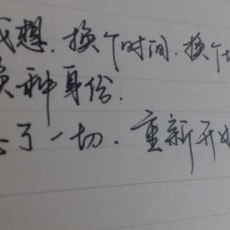 我想.换个时间.换个
换种身份.
了一切.重新开始